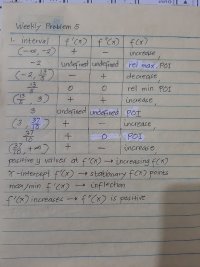 Weekly Problem 5
1. interval f'(x) f"(x) f(x)
(-∞, -2) + - increase
-2 undefined undefined rel max, POI
(-2, 13/3) - + decrease
13/3 0 0 rel min POI
(13/3, 3) + + increase
3 undefined undefined POI
(3, 37/10) + - increase
37/10 4 0 POI
(37/10, +∞) + - increase
positive y values at f'(x) → increasing f(x)
x-intercept f'(x) → stationary f(x) points
max/min f'(x) → inflection
f'(x) increases → f"(x) is positive